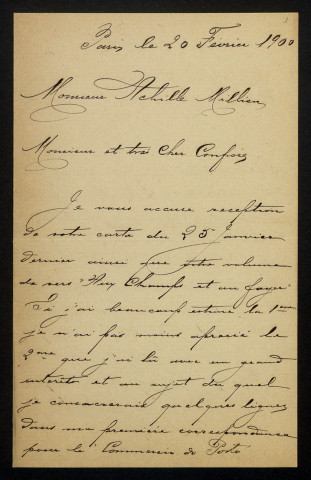 Paris le 20 Février 1900
Monsieur Achille Millien
Monsieur et très Cher Confrère
Je vous accuse reception
de votre carte du 25 Janvier
dernier ainsi que votre volume
de vers "Aux Champs et au foyer"
Si j'ai beaucoup estimé la 1ère
je n'ai pas moins aprecié le
2me que j'ai lû avec un grand
interêt et au sujet du quel
je consacrerais quelques lignes
dans ma première correspondance
pour le Commercio do Porto